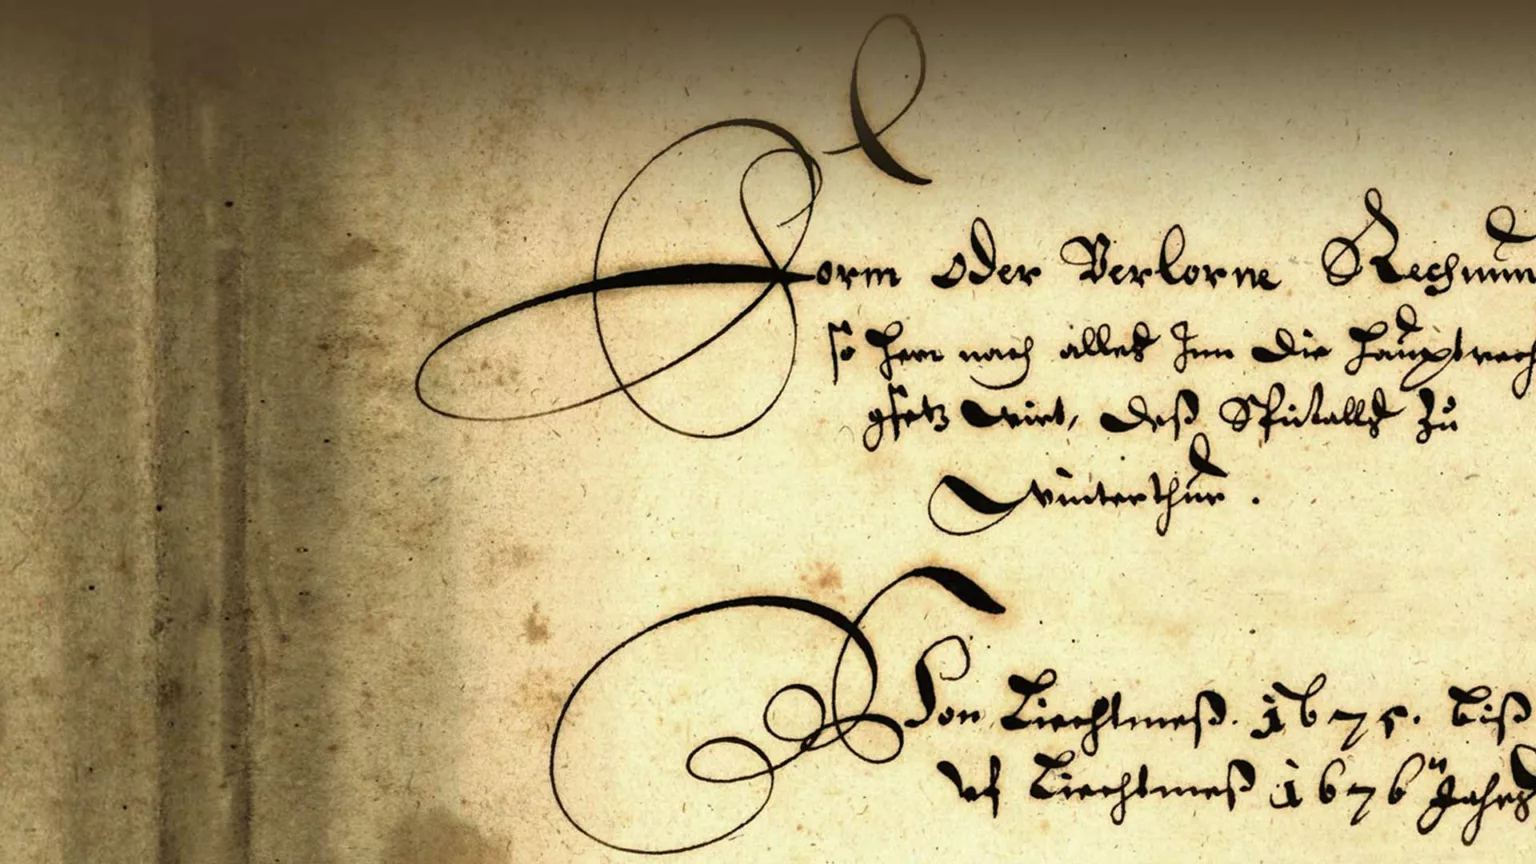 Form oder Verlorne Rechnun
so hernach alles Inn die hauptrech
gsetz wirt, deß Spitalls zu
Winterthur.
Von Liechtmeß. 1675. biß
uf Liechtmeß 1676 Jahrs